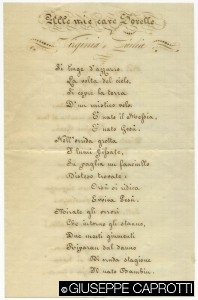 Alle mie care Sorelle
Virginia e
Si tinge d'azzurro
La volta del cielo,
Si copre la terra
D'un mistico velo
È nato il Messia,
È nato Gesù.
Nell'orrida grotta
Su paglia un fanciullo
trovate:
si
Evviva Gesù.
Mirate gli orrori
Che intorno gli stanno,
Due mesti giumenti
Riparan dal danno
Di cruda stagione
Il nato Bambin.
© GIUSEPPE CAPROTTI